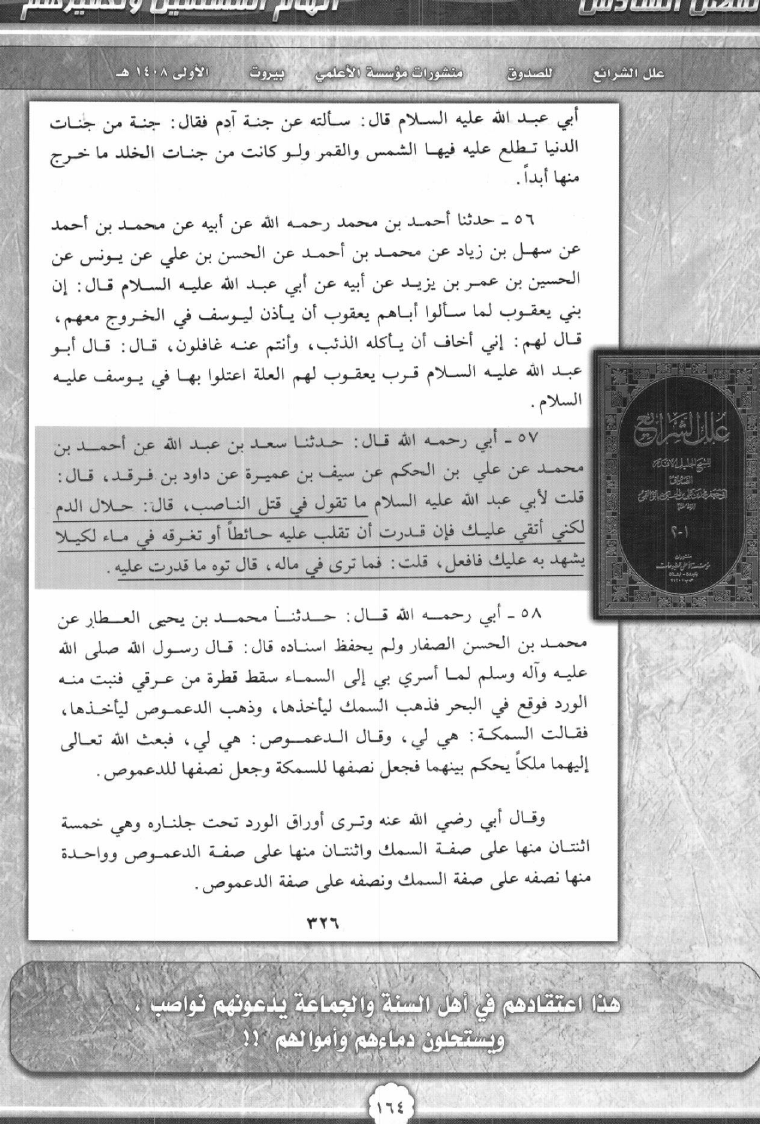 الفصل السادس
اتهام المسلمين وتكفيرهم
علل الشرائع للصدوق منشورات مؤسسة الأعلمي بيروت الأولى ١٤٠٨ هـ
أبي عبد الله عليه السلام قال: سألته عن جنة آدم فقال: جنة من جنات
الدنيا تطلع عليه فيها الشمس والقمر ولو كانت من جنات الخلد ما خرج
منها أبداً.
٥٦ ـ حدثنا أحمد بن محمد رحمه الله عن أبيه عن محمد بن أحمد
عن سهل بن زياد عن محمد بن أحمد عن الحسن بن علي عن يونس عن
الحسين بن عمر بن يزيد عن أبيه عن أبي عبد الله عليه السلام قال: إن
بني يعقوب لما سألوا أباهم يعقوب أن يأذن ليوسف في الخروج معهم،
قال لهم: إني أخاف أن يأكله الذئب، وأنتم عنه غافلون، قال: قال أبو
عبد الله عليه السلام قرب يعقوب لهم العلة اعتلوا بها في يوسف عليه
السلام.
٥٧ ـ أبي رحمه الله قال: حدثنا سعد بن عبد الله عن أحمد بن
محمد عن علي بن الحكم عن سيف بن عميرة عن داود بن فرقد، قال:
قلت لأبي عبد الله عليه السلام ما تقول في قتل الناصب، قال: حلال الدم
لكني أتقي عليك فإن قدرت أن تقلب عليه حائطاً أو تغرقه في ماء لكيلا
يشهد به عليك فافعل، قلت: فما ترى في ماله، قال توه ما قدرت عليه.
٥٨ ـ أبي رحمه الله قال: حدثنا محمد بن يحيى العطار عن
محمد بن الحسن الصفار ولم يحفظ اسناده قال: قال رسول الله صلى الله
عليه وآله وسلم لما أسري بي إلى السماء سقط قطرة من عرقي فنبت منه
الورد فوقع في البحر فذهب السمك ليأخذها، وذهب الدعموص ليأخذها،
فقالت السمكة: هي لي، وقال الدعموص: هي لي، فبعث الله تعالى
إليهما ملكاً يحكم بينهما فجعل نصفها للسمكة وجعل نصفها للدعموص.
وقال أبي رضي الله عنه وترى أوراق الورد تحت جلناره وهي خمسة
اثنتان منها على صفة السمك واثنتان منها على صفة الدعموص وواحدة
منها نصفه على صفة السمك ونصفه على صفة الدعموص.
٣٢٦
علل الشرائع
١-٢
هذا اعتقادهم في أهل السنة والجماعة يدعونهم نواصب ،
ويستحلون دماءهم وأموالهم !!
١٦٤